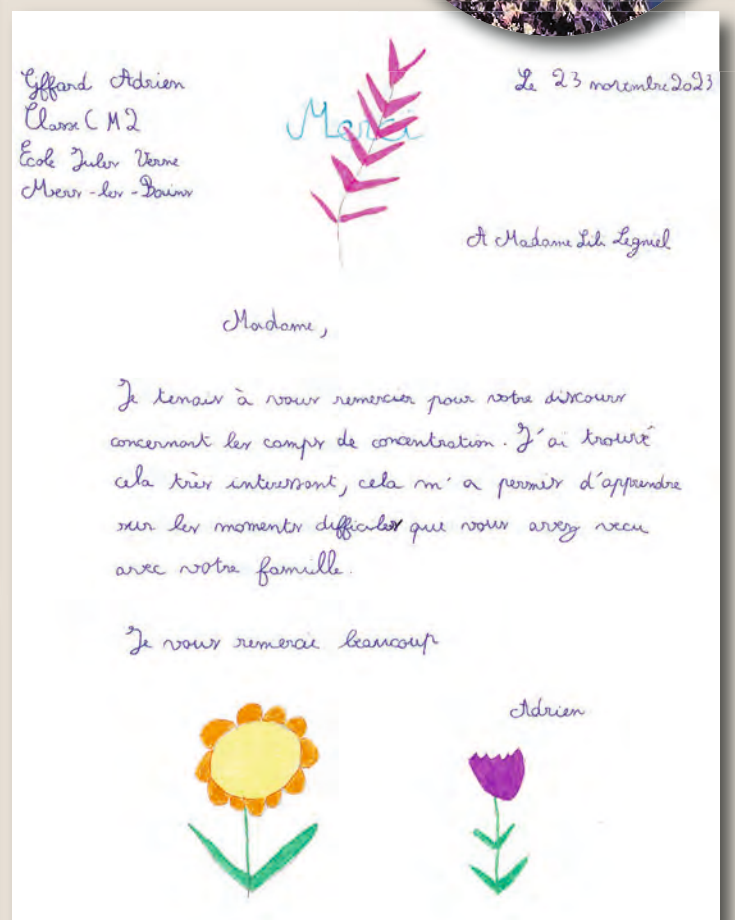 Giffard Adrien
Classe CM2
École Jules Verne
Mers-les-Bains
Merci
Le 23 novembre 2023
A Madame Lili Legniel
Madame,
Je tenais à vous remercier pour votre discours
concernant les camps de concentration. J'ai trouvé
cela très interessant, cela m'a permis d'apprendre
sur les moments difficiles que vous avez vecu
avec votre famille.
Je vous remercie beaucoup
Adrien